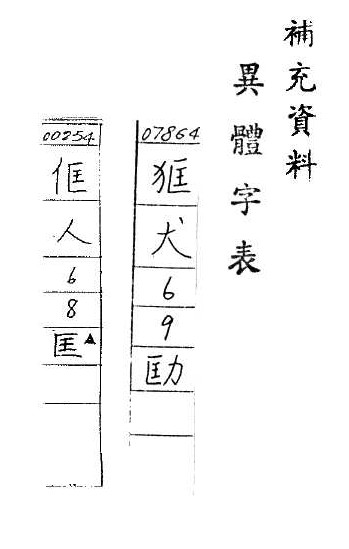 補充資料
異體字表
07864
狂
犬
6
9
劻
00254
俇
人
6
8
匡▲